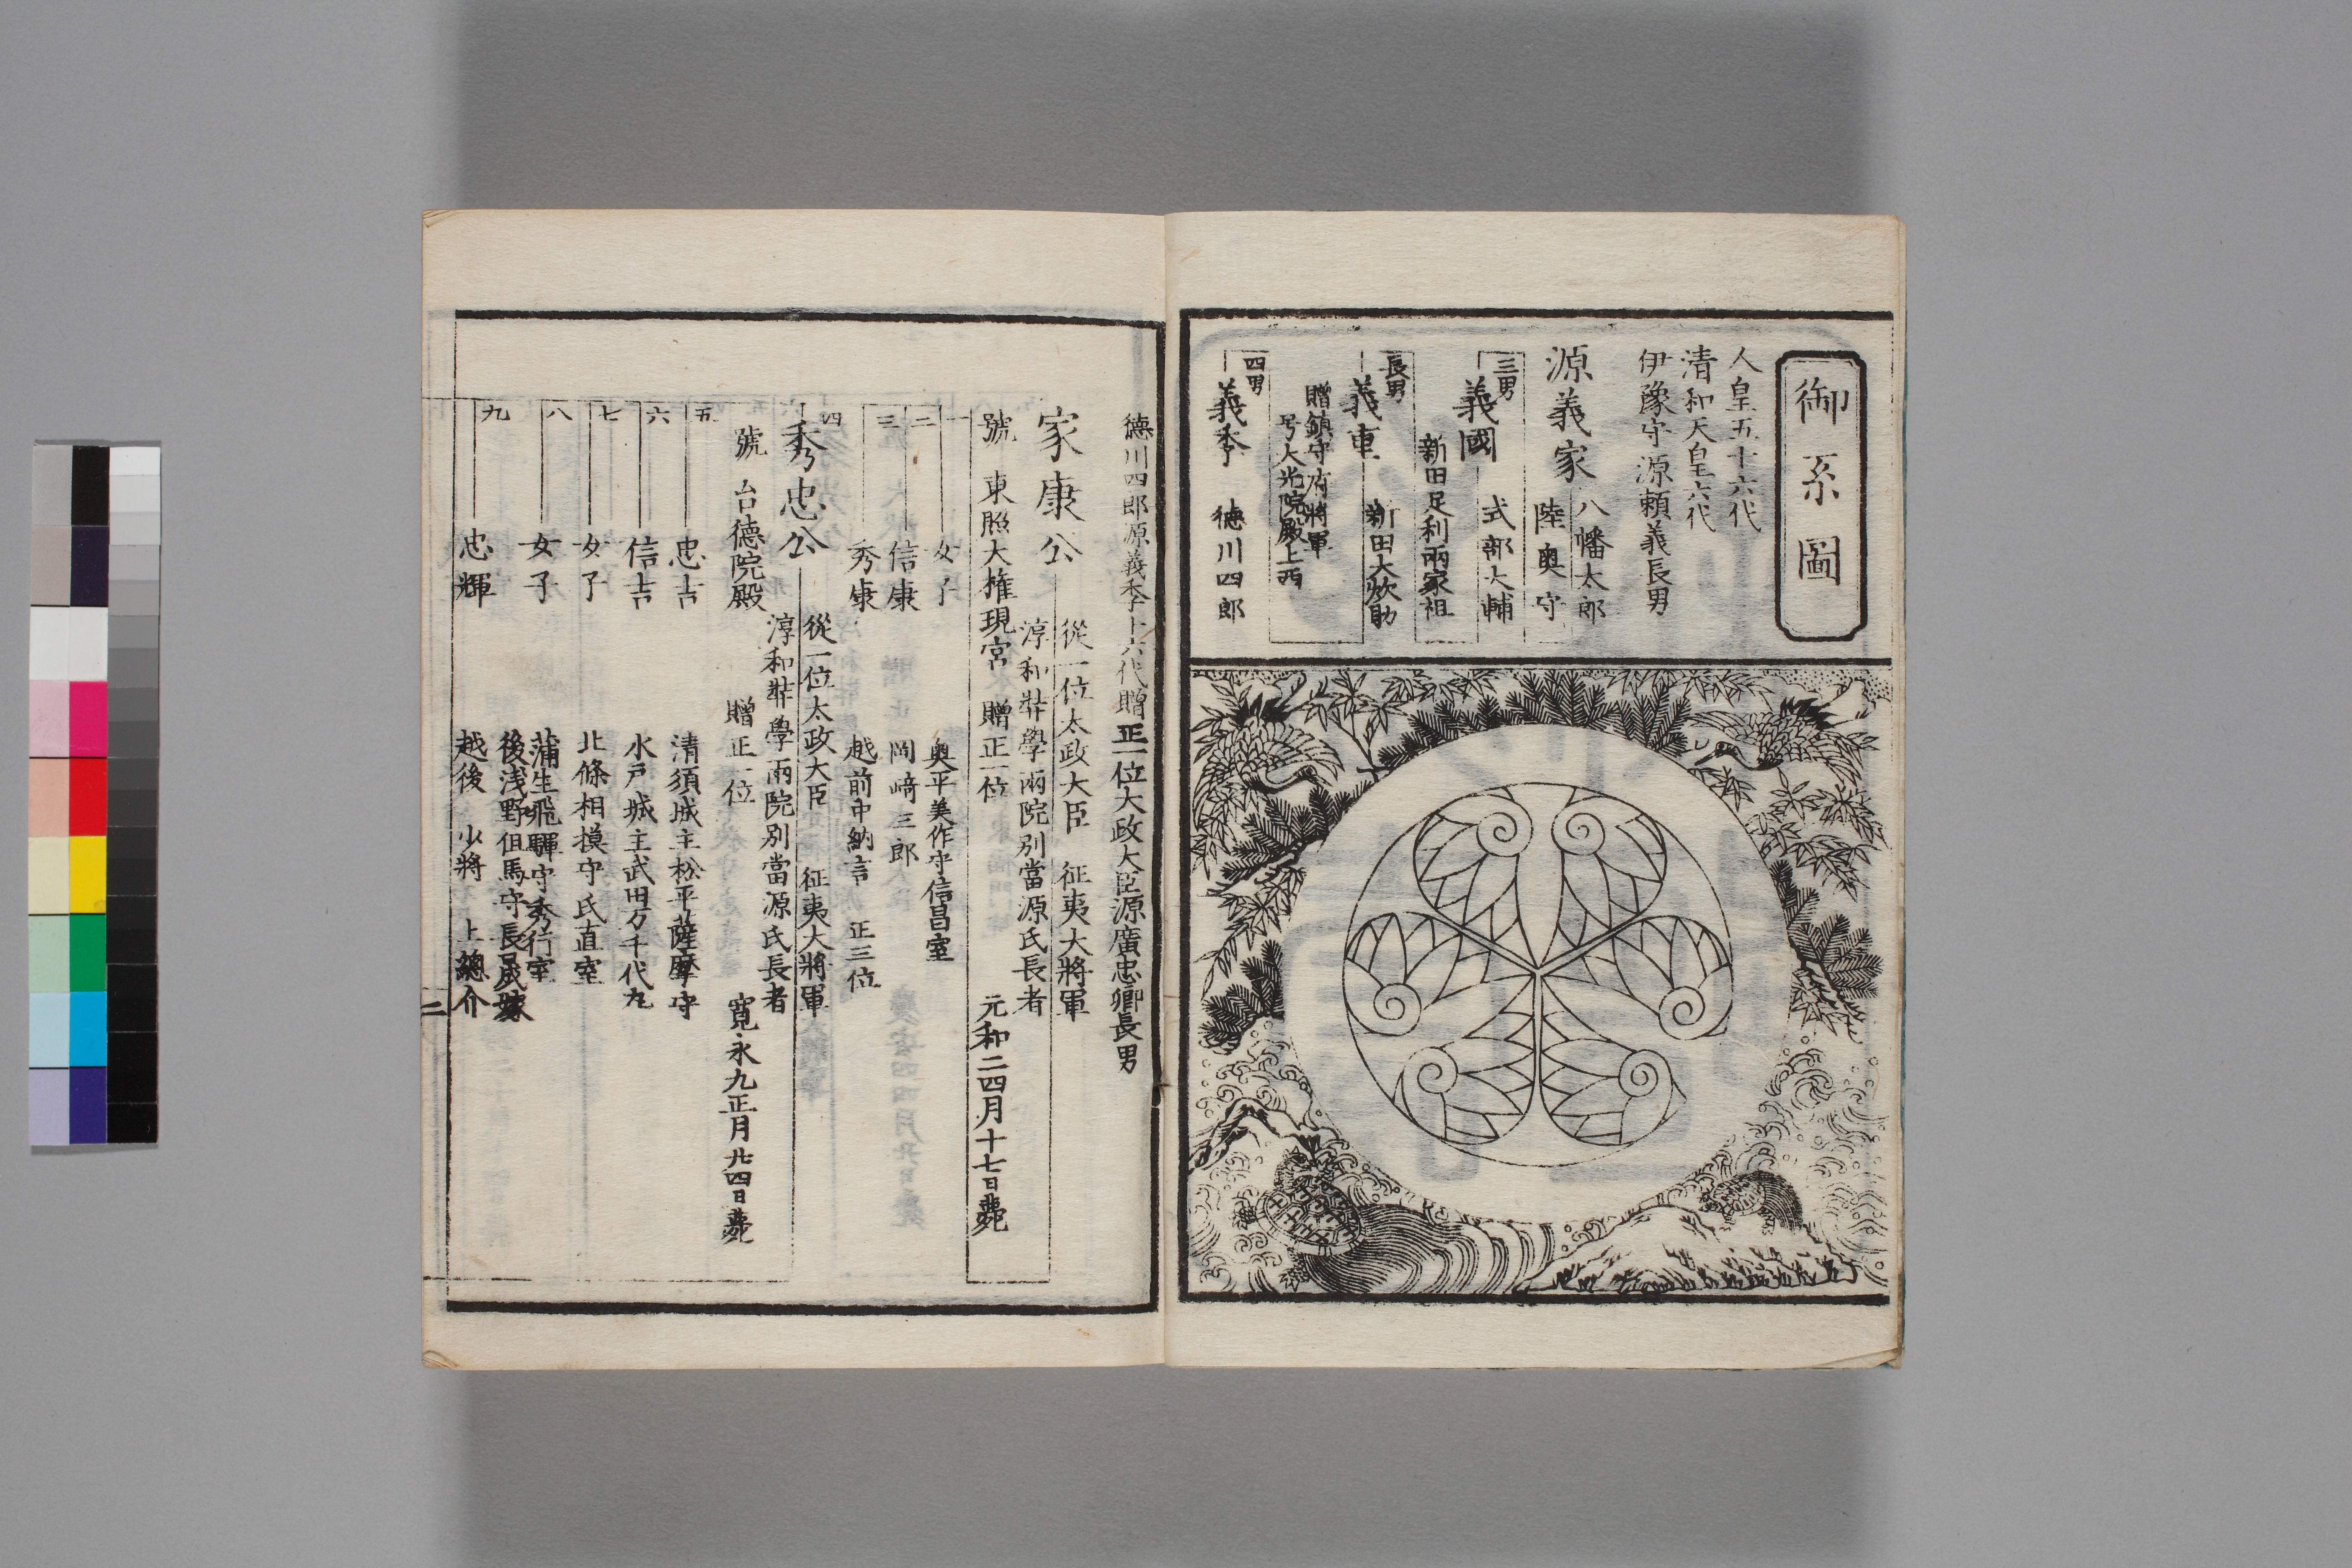 御系圖
人皇五十六代
清和天皇六代
伊豫守源頼義長男
源義家
八幡太郎
陸奥守
三男
義國
式部大輔
新田足利兩家祖
長男
義重
新田大炊助
贈鎮守府將軍
号大光院殿上西
四男
義季
徳川四郎
徳川四郎源義季十六代贈正一位大政大臣源廣忠卿長男
家康公
從一位太政大臣 征夷大將軍
淳和弉學兩院別當源氏長者
號 東照大権現宮 贈正一位 元和二四月十七日薨
一 女子 奥平美作守信昌室
二 信康 岡﨑三郎
三 秀康 越前中納言 正三位
四
秀忠公
從一位太政大臣 征夷大將軍
淳和弉學兩院別當源氏長者
號 台徳院殿 贈正一位 寛永九正月廿四日薨
五 忠吉 清須城主松平薩摩守
六 信吉 水戸城主武田万千代丸
七 女子 北條相模守氏直室
八 女子 蒲生飛騨守秀行室
後浅野但馬守長晟嫁
九 忠輝 越後少將 上總介
二